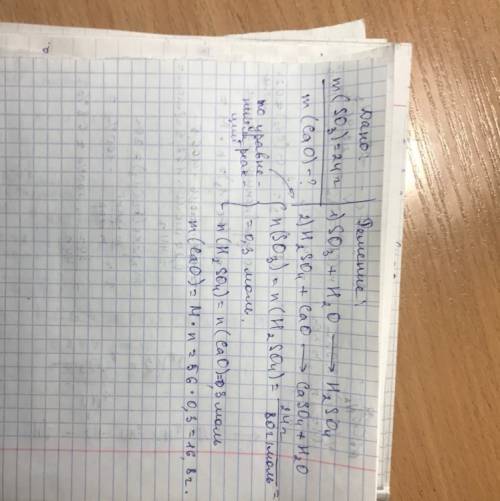 Дано:
m(SO₃)=24г
m(CaO)-?
Решение:
1) SO₃ + H₂O ⟶ H₂SO₄
2) H₂SO₄ + CaO ⟶ CaSO₄ + H₂O
по уравне-
ниям реак-
ций
n(SO₃) = n(H₂SO₄) = 24г / 80г/моль =
= 0,3 моль.
n(H₂SO₄) = n(CaO)=0,3 моль
m(CaO) = M · n = 56 · 0,3 = 16,8г.